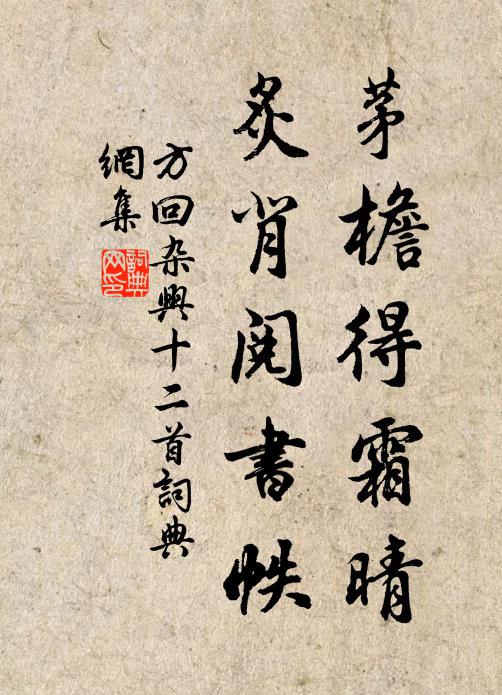 茅檐得霜晴
炙背閱書帙
方回杂興十二首詞典
網集
詞典
网印